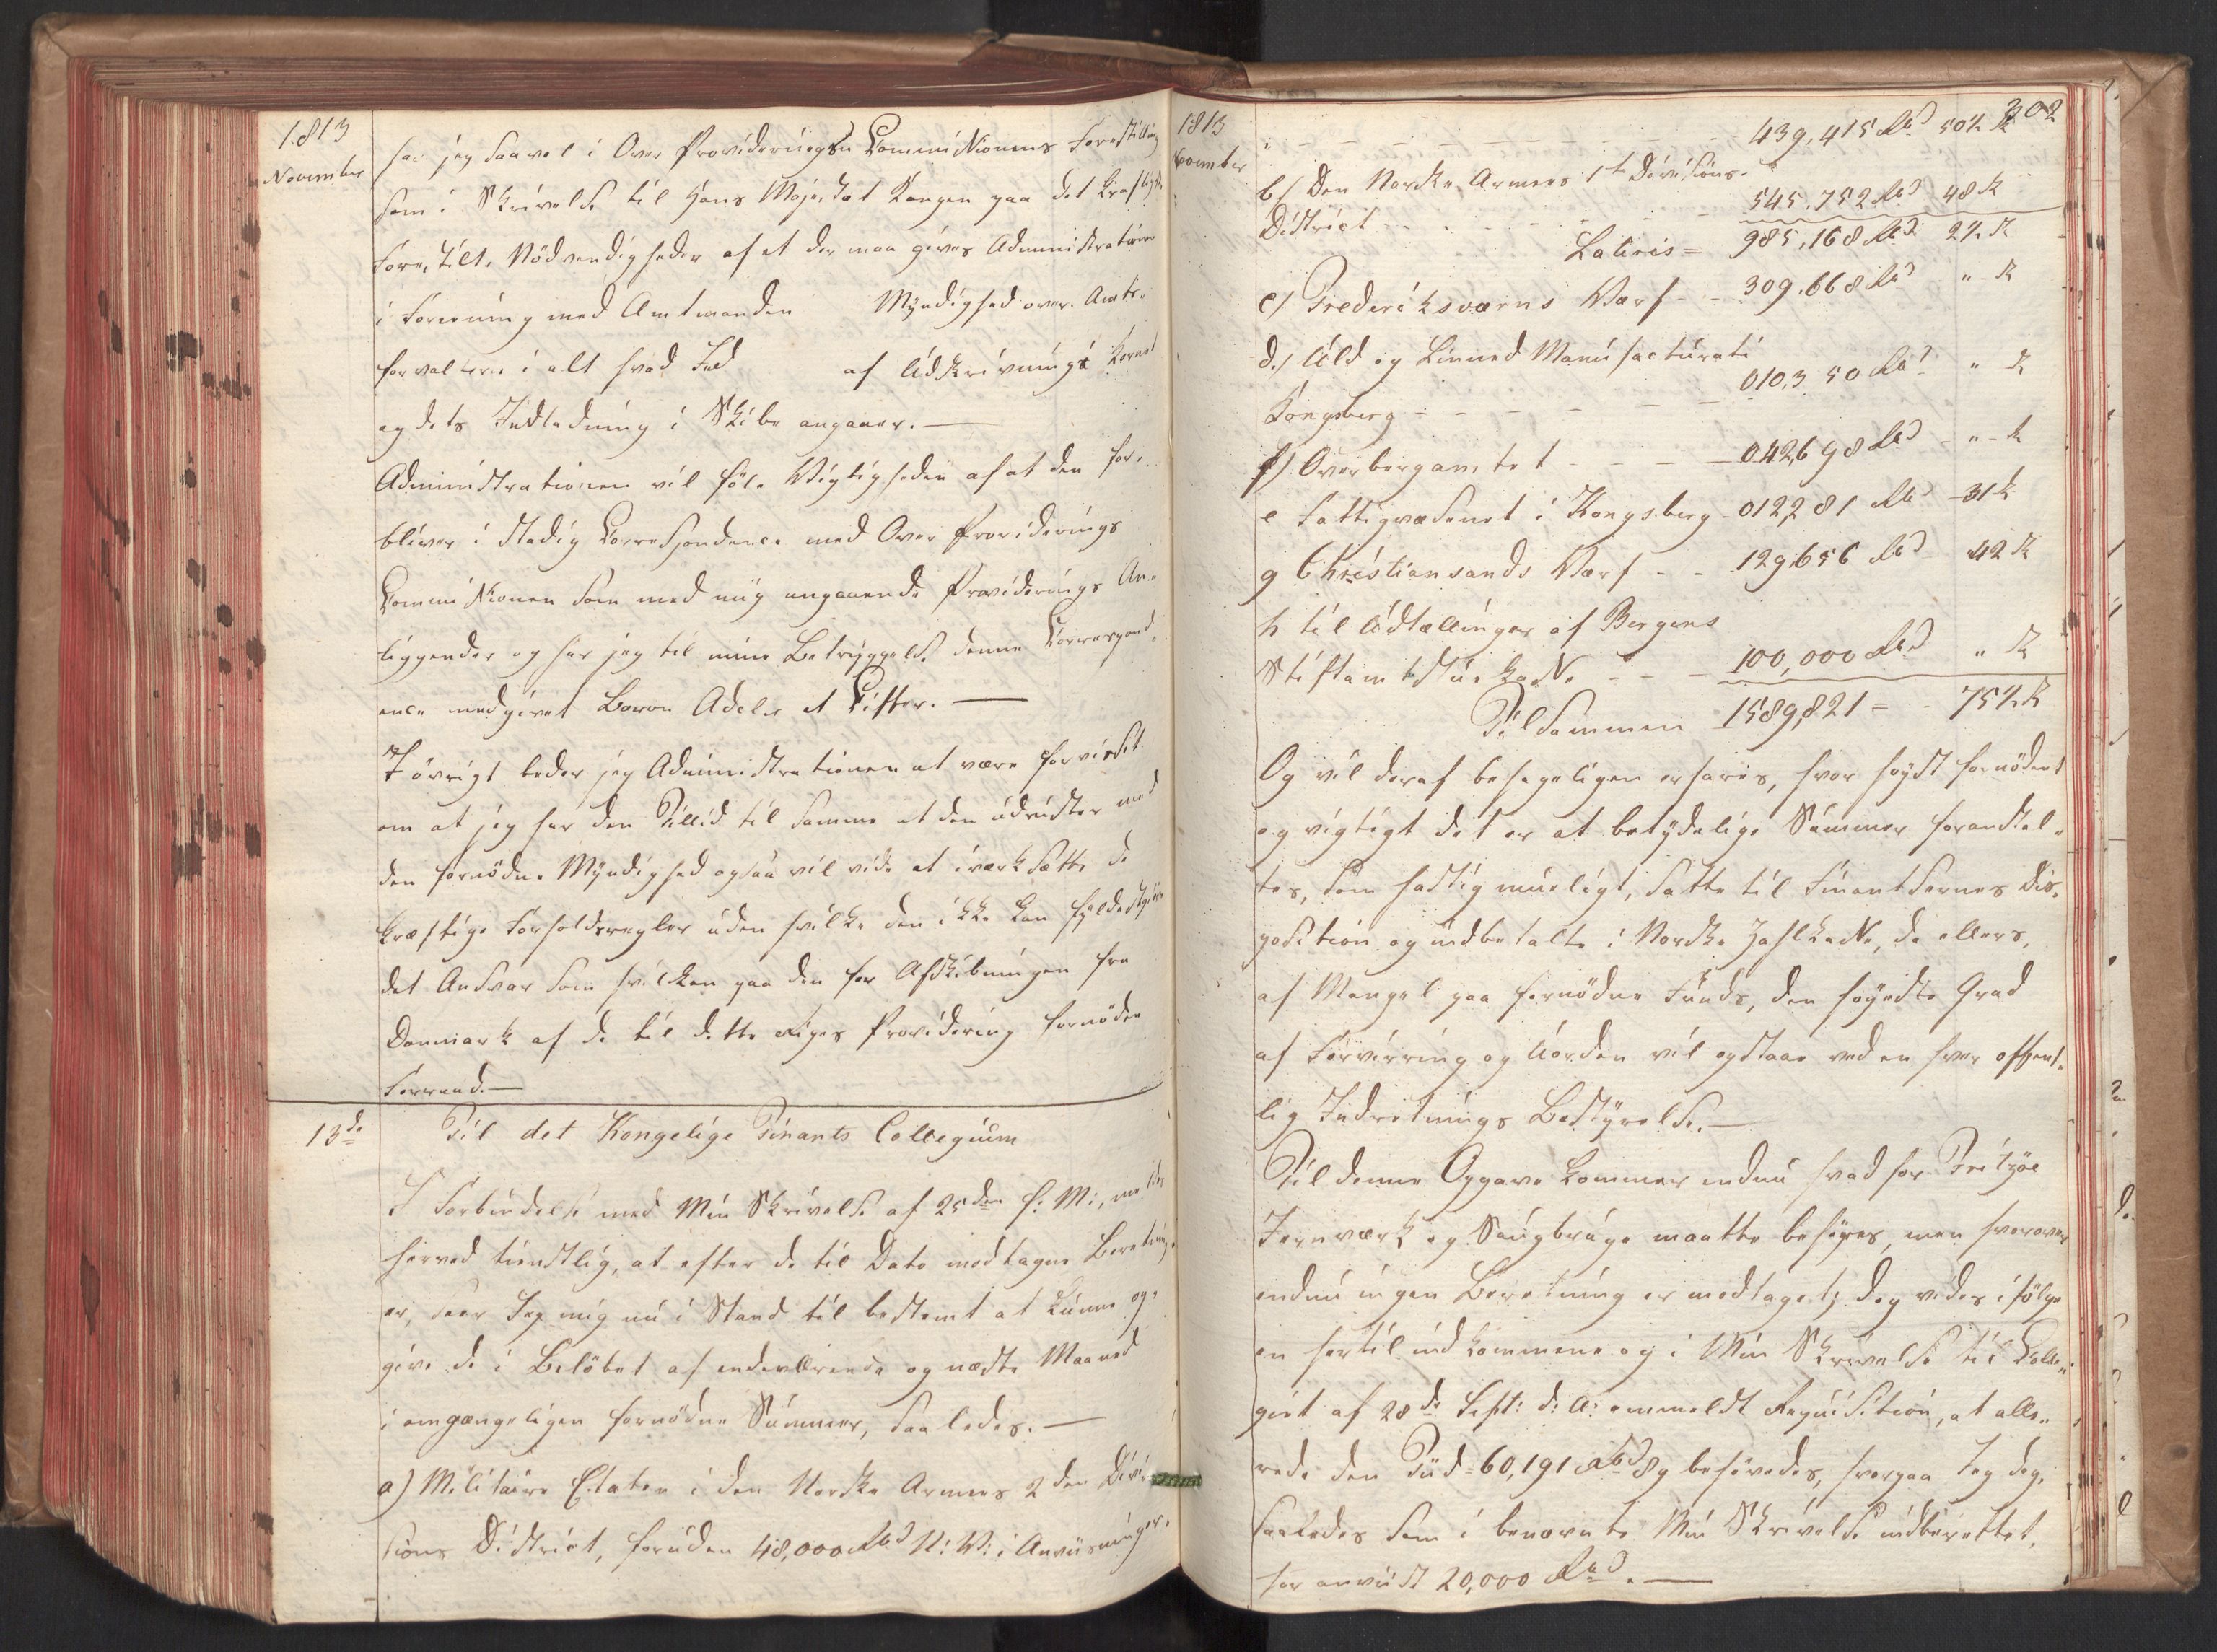 1813
November
har jeg saavel i Over Provideringsn Commissionens Forestilling
som i Skrivelse til Hans Majestæt Kongen paa det kraftigste
forestilt Nödvendigheden af at der maa gives Administrationen
i Forening med Amtmanden Myndighed over Amts-
forvalterne i alt hvad Ind af Udskrivnings Kornet
og dets Indladning i Skibe angaaer.—
Administrationen vil föle Vigtigheden af at den for-
bliver i stadig Correspondence med Over Providerings
Commissionen som med mig angaaende Providerings An-
liggender og har jeg til mine Betryggelse denne Correspond-
ence medgivet Baron Adeler et Ciffer.—
I övrigt beder jeg Administrationen at være forvisset
om at jeg har den Tillid til samme at den udrustet med
den fornödne Myndighed ogsaa vil vide at iværksætte de
kræftige Forholdsregler uden hvilke den ikke kan fyldestgiøre
det Ansvar som hviler paa den for Afskibningen fra
Danmark af de til dette Riges Providering fornödne
Kornvarer.—
13de Til det Kongelige Finants Collegium
I Forbindelse med Min Skrivelse af 25de f: M:, meldes
herved tienstlig, at efter de til Dato modtagne Beretning-
er, seer Jeg mig nu i Stand til bestemt at kunne op-
give de i Belöbet af indeværende og næste Maaned
i omgængeligen fornödne Summer, saaledes.—
a) Militaire Etaten i den Norske Armees 2den Divi-
sions District, foruden 48,000 Rbd N: V: i Anviisninger.
1813
November
302
" – – – – – – – 439,415 Rbd 50½ sk
b/ Den Norske Armees 1te Divisions-
District – – – – 545,752 Rbd 48 sk
Lateris = 985,168 Rbd 2½ sk
c/ Frederiksværns Værf – – 309,668 Rbd " sk
d./ Uld og Linned Manufacturet i
Kongsberg – – – – – – 010,350 Rbd " sk
f/ Overbergamtet – – – – 042,698 Rbd – " – sk
e Fattigvæsenet i Kongsberg – 012,281 Rbd – 31 sk
g Christiansands Værf – – 129,656 Rbd – 42 sk
h til Udtællinger af Bergens
Stiftamtstue kasse – – – 100,000 Rbd " sk
Tilsammen 1589,821 = – 75½ sk
Og vil deraf behageligen erfares, hvor höyst fornödent
og vigtigt det er at betydelige Summer foranstal-
tes, som hastig mueligt, satte til Finantsernes Dis-
position og indbetalte i Norske Zahlkasse, da ellers,
af Mangel paa fornödne Funds, den höyeste Grad
af Forvirring og Uorden vil opstaae ved en hver offent-
lig Indretnings Bestyrelse.—
Til denne Opgave kommer endnu hvad for Fritzöe
Jernværk og Saugbruge maatte behöves, men hvorover
endnu ingen Beretning er modtaget; dog vides i fölge
en hertil indkommen og i Min Skrivelse til Colle-
giet af 28de Sept: d: A: ommeldt Reqvisition, at alle-
rede den Tiid 60,191 Rbd 89 behövedes, hvorpaa Jeg dog,
saaledes som i benævnte Min Skrivelse indberettet,
har anviist 20,000 Rbd.—